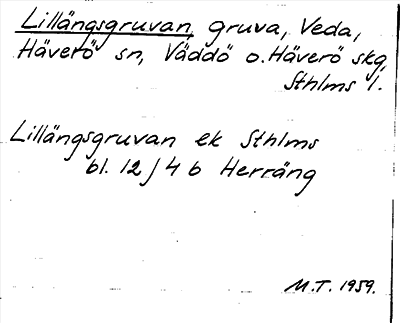 Lillängsgruvan, gruva, Veda,
Häverö sn, Väddö o. Häverö skg,
Sthlms l.
Lillängsgruvan ek Sthlms
bl. 12 J 4 b Herräng
M.T. 1959.